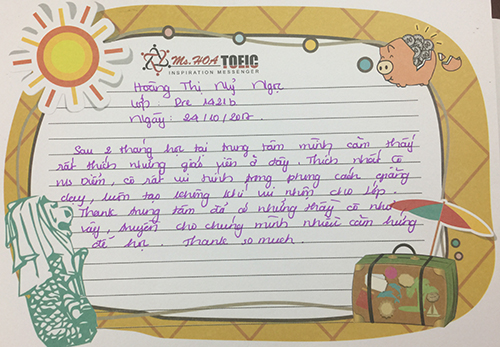 Ms. HOA TOEIC
INSPIRATION MESSENGER
Hoàng Thị Mỹ Ngọc
Lớp: Pre 1421b
Ngày: 24/10/2017
Sau 2 tháng học tại trung tâm mình cảm thấy
rất thích những giáo viên ở đây. Thích nhất cô
Ms Diễm, cô rất vui tính, phong cách giảng
dạy, luôn tạo không khí vui nhộn cho lớp.
Thank trung tâm đã có những thầy cô như
vậy, truyền cho chúng mình nhiều cảm hứng
để học. Thank so much.